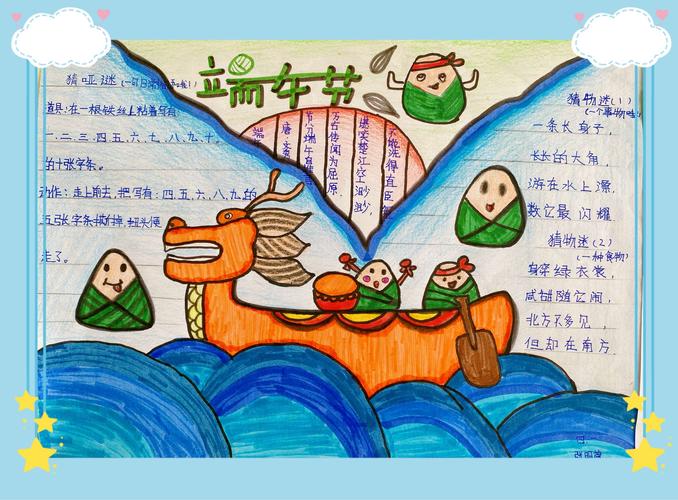 端午节
猜哑谜
道具:在一根铁丝上粘着写有:
一.二.三.四.五.六.七.八.九.十.
的十张字条。
动作:走上前去,把写有:四.五.六.八.九.的
五张字条摘掉,扭头便
走了。
端
唐:文秀
节分端午自
万古传闻为屈原,
堪笑楚江空渺渺,
不能洗得直臣
猜物谜(1)
(一个事物哦!)
一条长身子,
长长的大角,
游在水上漂,
数它最闪耀
猜物谜(2)
(一种食物)
身穿绿衣裳,
咸甜随它闹,
北方不多见,
但却在南方.
四.